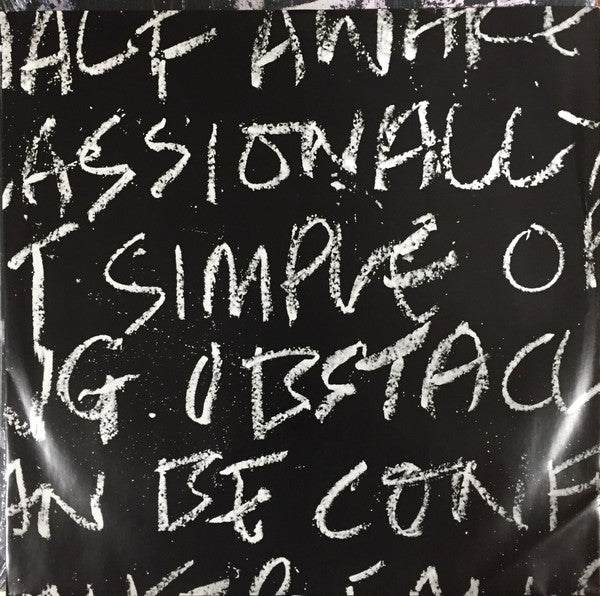 HALF AWAKE
ASSIONALLY
T SIMPLE OR
UG. OBSTACL
AN BE CONF